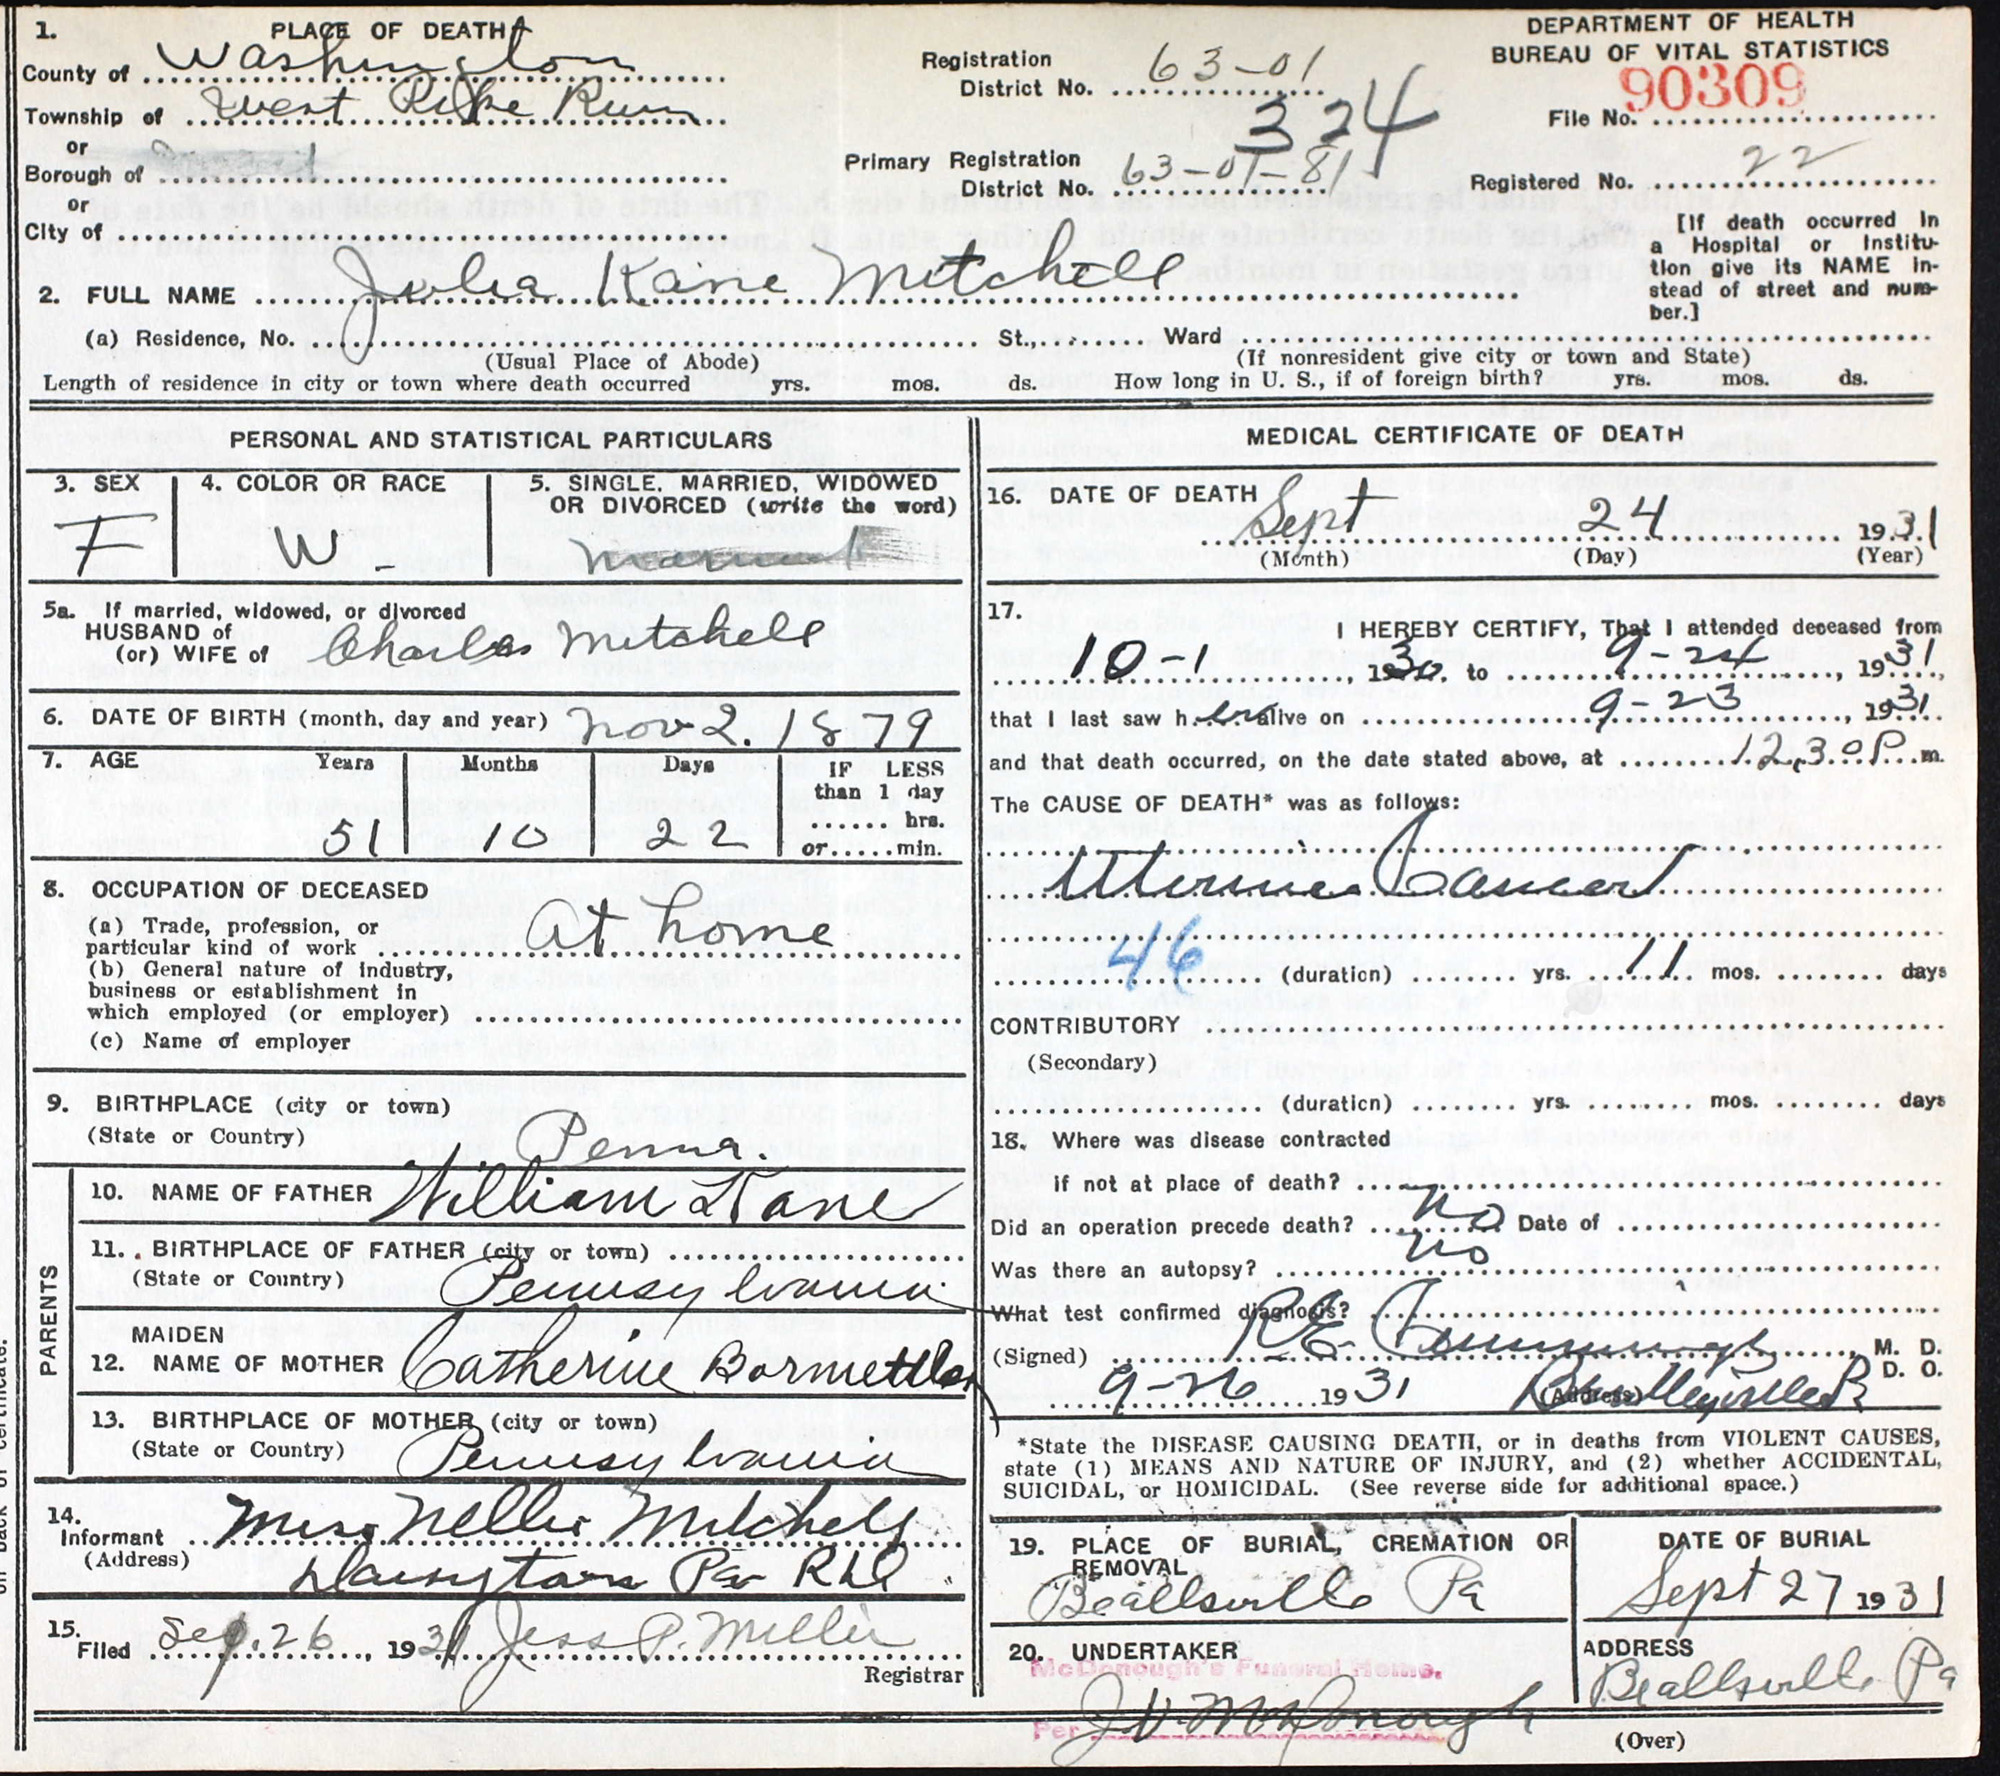 1. PLACE OF DEATH
County of Washington
Township of West Pike Run
or
Borough of
or
City of
Registration
District No. 63-01
324
Primary Registration
District No. 63-01-81
DEPARTMENT OF HEALTH
BUREAU OF VITAL STATISTICS
90309
File No.
Registered No. 22
[If death occurred in
a Hospital or Institu-
tion give its NAME in-
stead of street and num-
ber.]
2. FULL NAME Julia Kane Mitchell
(a) Residence, No. St. Ward
(Usual Place of Abode) (If nonresident give city or town and State)
Length of residence in city or town where death occurred yrs. mos. ds. How long in U. S., if of foreign birth? yrs. mos. ds.
PERSONAL AND STATISTICAL PARTICULARS
3. SEX 4. COLOR OR RACE 5. SINGLE, MARRIED, WIDOWED
OR DIVORCED (write the word)
F W married
5a. If married, widowed, or divorced
HUSBAND of
(or) WIFE of Charles Mitchell
6. DATE OF BIRTH (month, day and year) Nov 2. 1879
7. AGE Years Months Days IF LESS
than 1 day
hrs.
51 10 22 or min.
8. OCCUPATION OF DECEASED
(a) Trade, profession, or
particular kind of work at home
(b) General nature of industry,
business or establishment in
which employed (or employer)
(c) Name of employer
9. BIRTHPLACE (city or town)
(State or Country) Penna.
PARENTS
10. NAME OF FATHER William Kane
11. BIRTHPLACE OF FATHER (city or town)
(State or Country) Pennsylvania
MAIDEN
12. NAME OF MOTHER Catherine
13. BIRTHPLACE OF MOTHER (city or town)
(State or Country) Pennsylvania
14.
Informant Miss Nellie Mitchell
(Address) Pa
15.
Filed Sep. 26, 1931 Jess P. Miller
Registrar
MEDICAL CERTIFICATE OF DEATH
16. DATE OF DEATH
Sept 24 1931
(Month) (Day) (Year)
17.
I HEREBY CERTIFY, That I attended deceased from
10-1, 1930. to 9-24, 1931,
that I last saw her alive on 9-23, 1931.
and that death occurred, on the date stated above, at 12,30 P. m.
The CAUSE OF DEATH* was as follows:
Uterine Cancer
46 (duration) yrs. 11 mos. days
CONTRIBUTORY
(Secondary)
(duration) yrs. mos. days
18. Where was disease contracted
if not at place of death?
Did an operation precede death? no Date of
Was there an autopsy? no
What test confirmed diagnosis?
(Signed) M. D.
D. O.
9-26 1931 (Address)
*State the DISEASE CAUSING DEATH, or in deaths from VIOLENT CAUSES,
state (1) MEANS AND NATURE OF INJURY, and (2) whether ACCIDENTAL,
SUICIDAL, or HOMICIDAL. (See reverse side for additional space.)
19. PLACE OF BURIAL, CREMATION OR
REMOVAL
Beallsville Pa
DATE OF BURIAL
Sept 27 1931
20. UNDERTAKER
McDonough's Funeral Home.
Per J. V. McDonough
ADDRESS
Beallsville Pa
(Over)